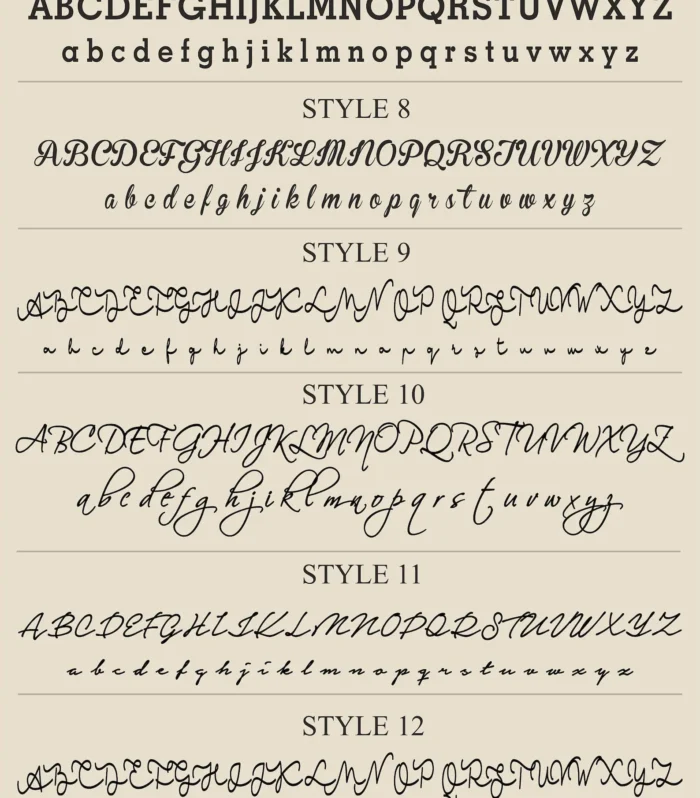 ABCDEFGHIJKLMNOPQRSTUVWXYZ
a b c d e f g h j i k l m n o p q r s t u v w x y z
STYLE 8
ABCDEFGHIJKLMNOPQRSTUVWXYZ
a b c d e f g h j i k l m n o p q r s t u v w x y z
STYLE 9
ABCDEFGHIJKLMN OP QRSTUVWXYZ
a b c d e f g h j i k l m n o p q r s t u v w x y z
STYLE 10
ABCDEFGHIJKLMNOPQRSTUVWXYZ
a b c d e f g h j i k l m n o p q r s t u v w x y z
STYLE 11
ABCDEFGHIJKLMNOPQRSTUVWXYZ
a b c d e f g h j i k l m n o p q r s t u v w x y z
STYLE 12
ABCDEFGHIJKLMN OP QRSTUVWXYZ